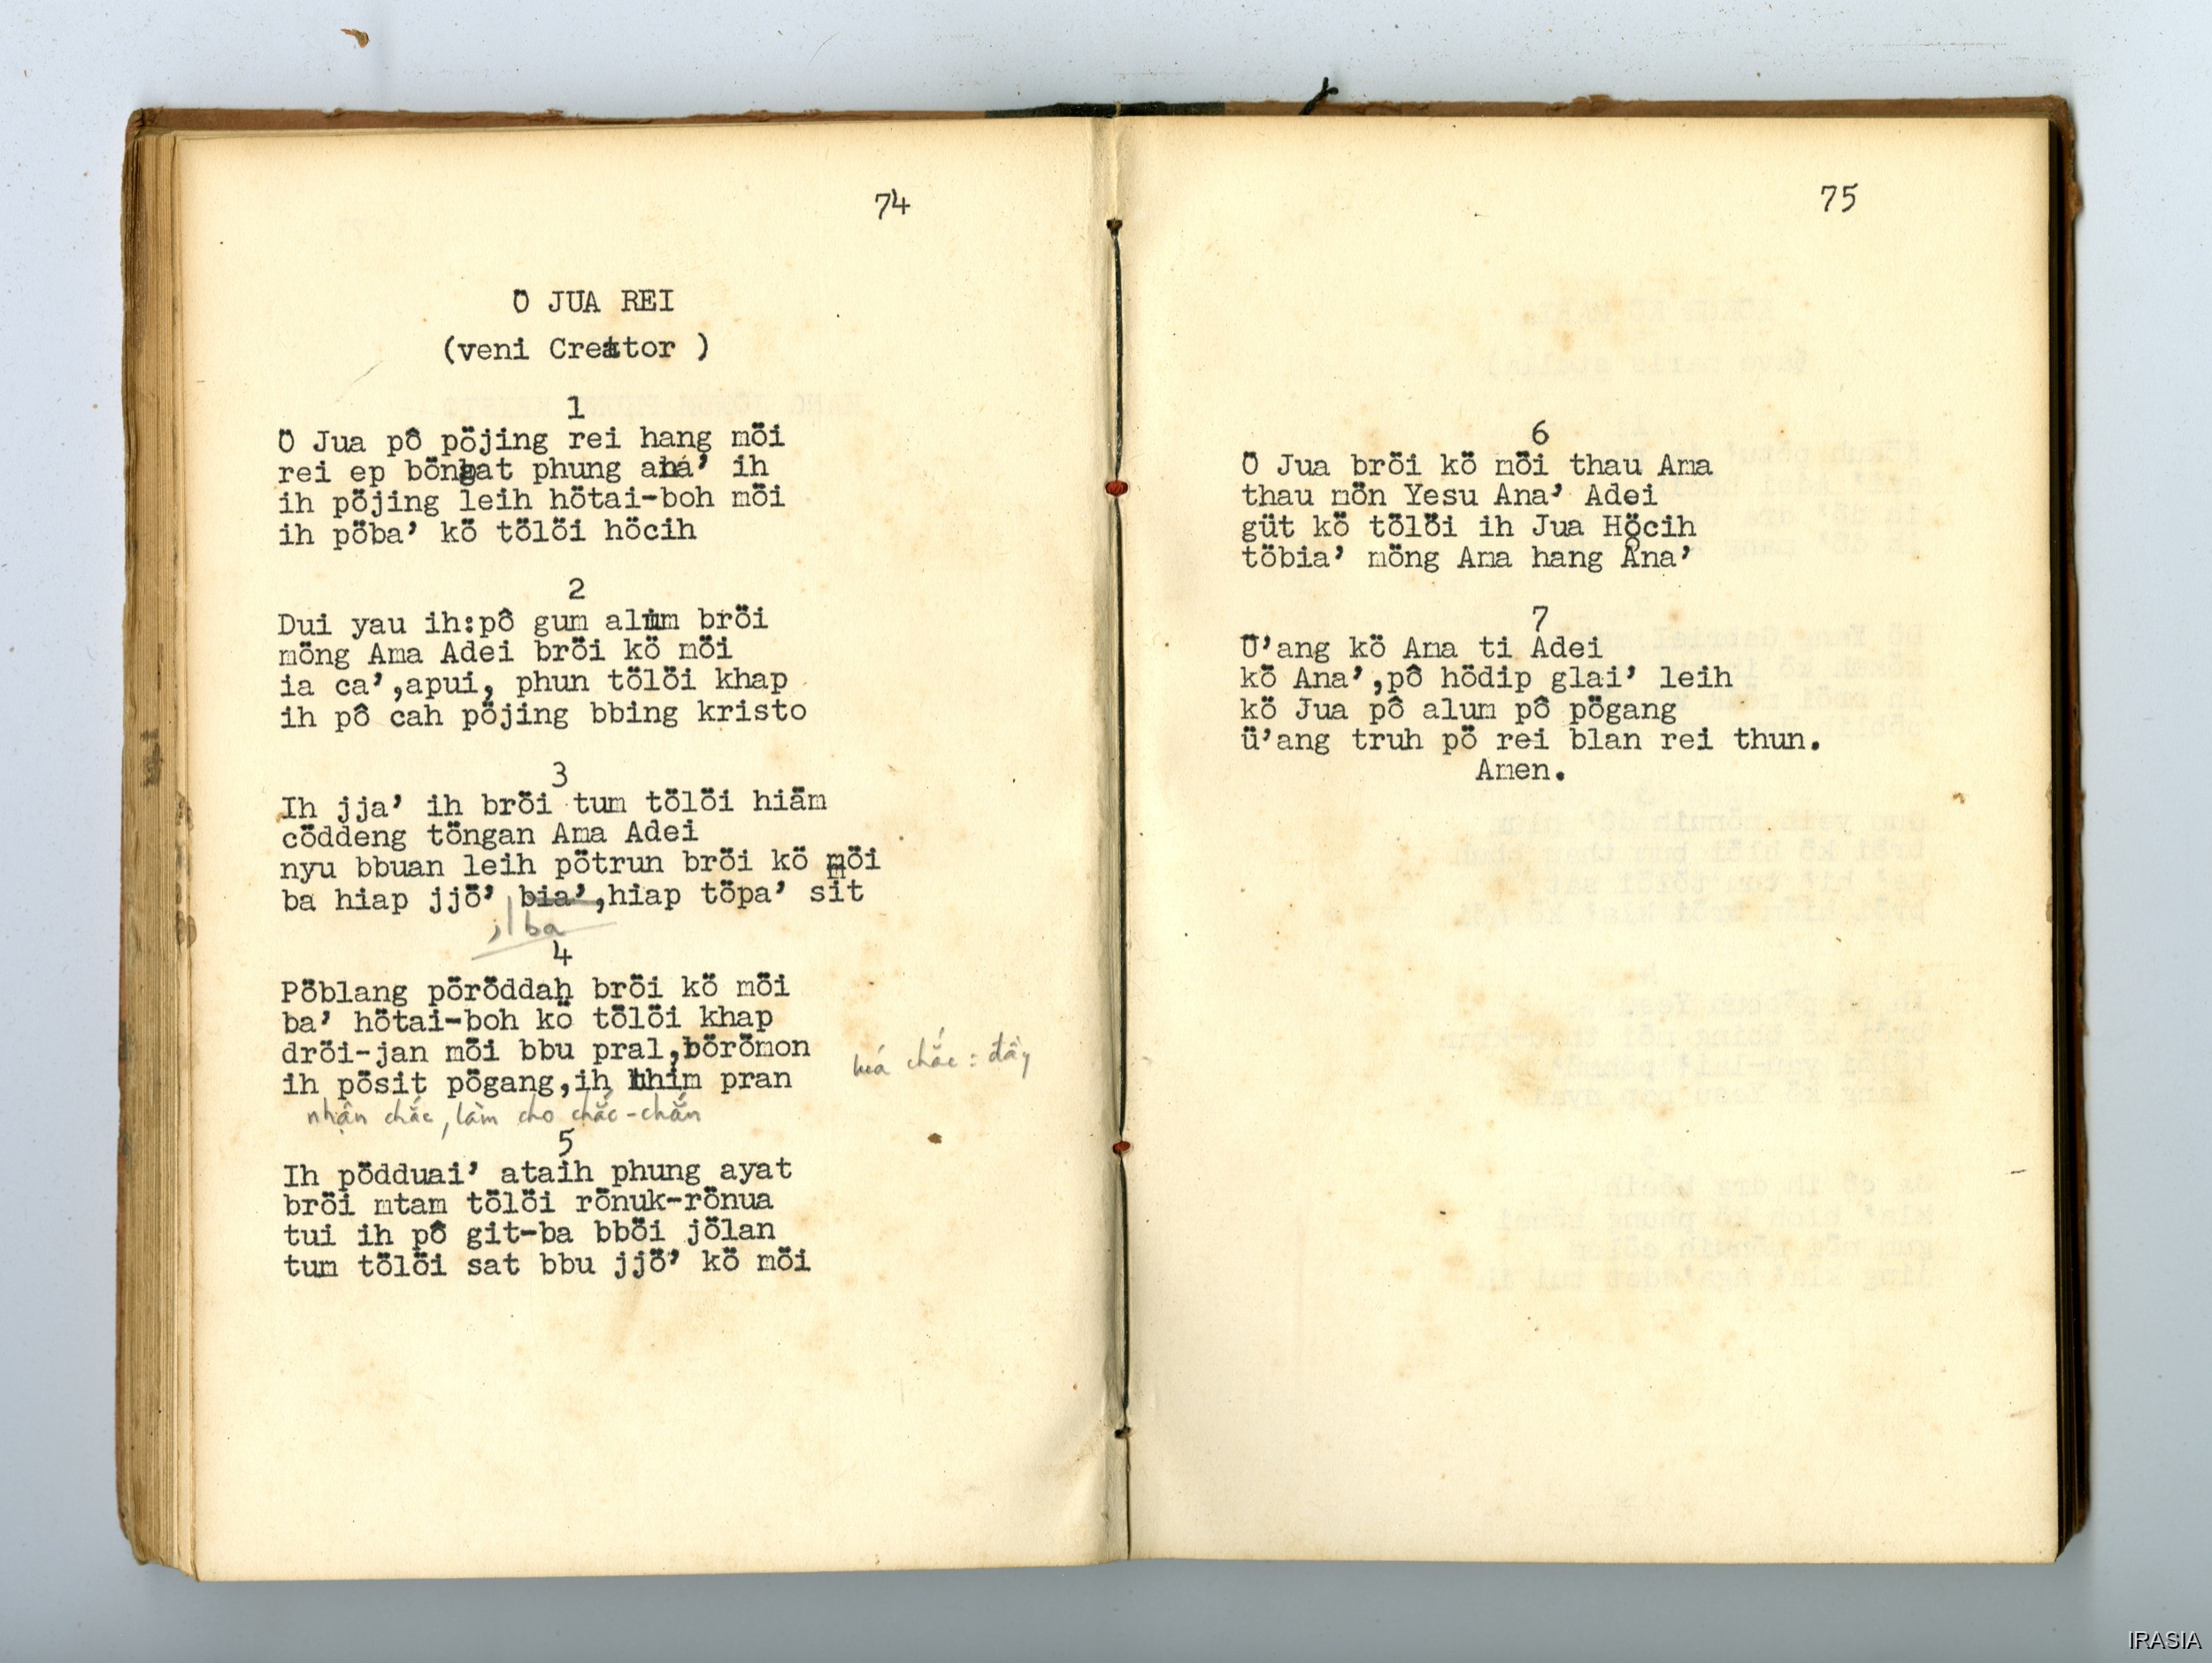 74
Ö JUA REI
(veni Creator )
1
Ö Jua pô pöjing rei hang möi
rei ep böngat phung aná’ ih
ih pöjing leih hötai-boh möi
ih pöba’ kö tölöi höcih
2
Dui yau ih:pô gum alum bröi
möng Ama Adei bröi kö möi
ia ca’,apui, phun tölöi khap
ih pô cah pöjing bbing kristo
3
Ih jja’ ih bröi tum tölöi hiäm
cöddeng töngan Ama Adei
nyu bbuan leih pötrun bröi kö möi
ba hiap jjö’ bia’,hiap töpa’ sit
, ba
4
Pöblang pöröddah bröi kö möi
ba’ hötai-boh kö tölöi khap
dröi-jan möi bbu pral,börömon
chắc : đầy
ih pösit pögang,ih hhim pran
nhận chắc, làm cho chắc-chắn
5
Ih pödduai’ ataih phung ayat
bröi mtam tölöi rönuk-rönua
tui ih pô git-ba bböi jölan
tum tölöi sat bbu jjö’ kö möi
75
6
Ö Jua bröi kö möi thau Ama
thau mön Yesu Ana’ Adei
güt kö tölöi ih Jua Höcih
töbia’ möng Ama hang Ana’
7
Ü’ang kö Ama ti Adei
kö Ana’,pô hödip glai’ leih
kö Jua pô alum pô pögang
ü’ang truh pö rei blan rei thun.
Amen.
IRASIA